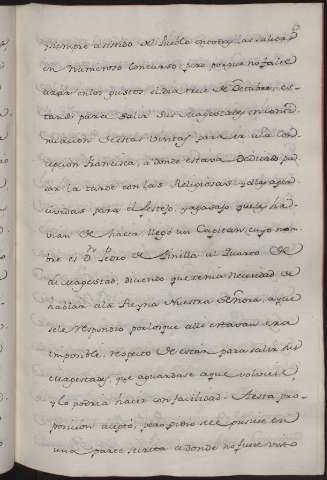 siempre asistido del Pueblo en todas las salidas
en numeroso concurso; pero porque no falte
azar en los gustos, el dia trece de Octubre, es-
tando para salir Sus Magestades en conti-
nuacion de estas visitas para ir a la Con-
cepcion Francisca, a donde estava dedicado pa-
sar la tarde con las Religiosas, y ellas aper-
cividas para el festejo, y agasajo que les ha-
vian de hacer, llegó un Capitan, cuyo nom-
bre es Dn. Pedro de Pinilla al Quarto de
su Magestad, diciendo que tenia necesidad de
hablar a la Reyna Nuestra Señora, a que
se le respondio por los que alli estavan era
imposible, respecto de estar para salir sus
Magestades, que aguardase a que volviese,
y lo podria hacer con facilidad. A esta pro-
posicion aceptó, pero pidio se le pusiese en
una parte secreta a donde no fuese visto